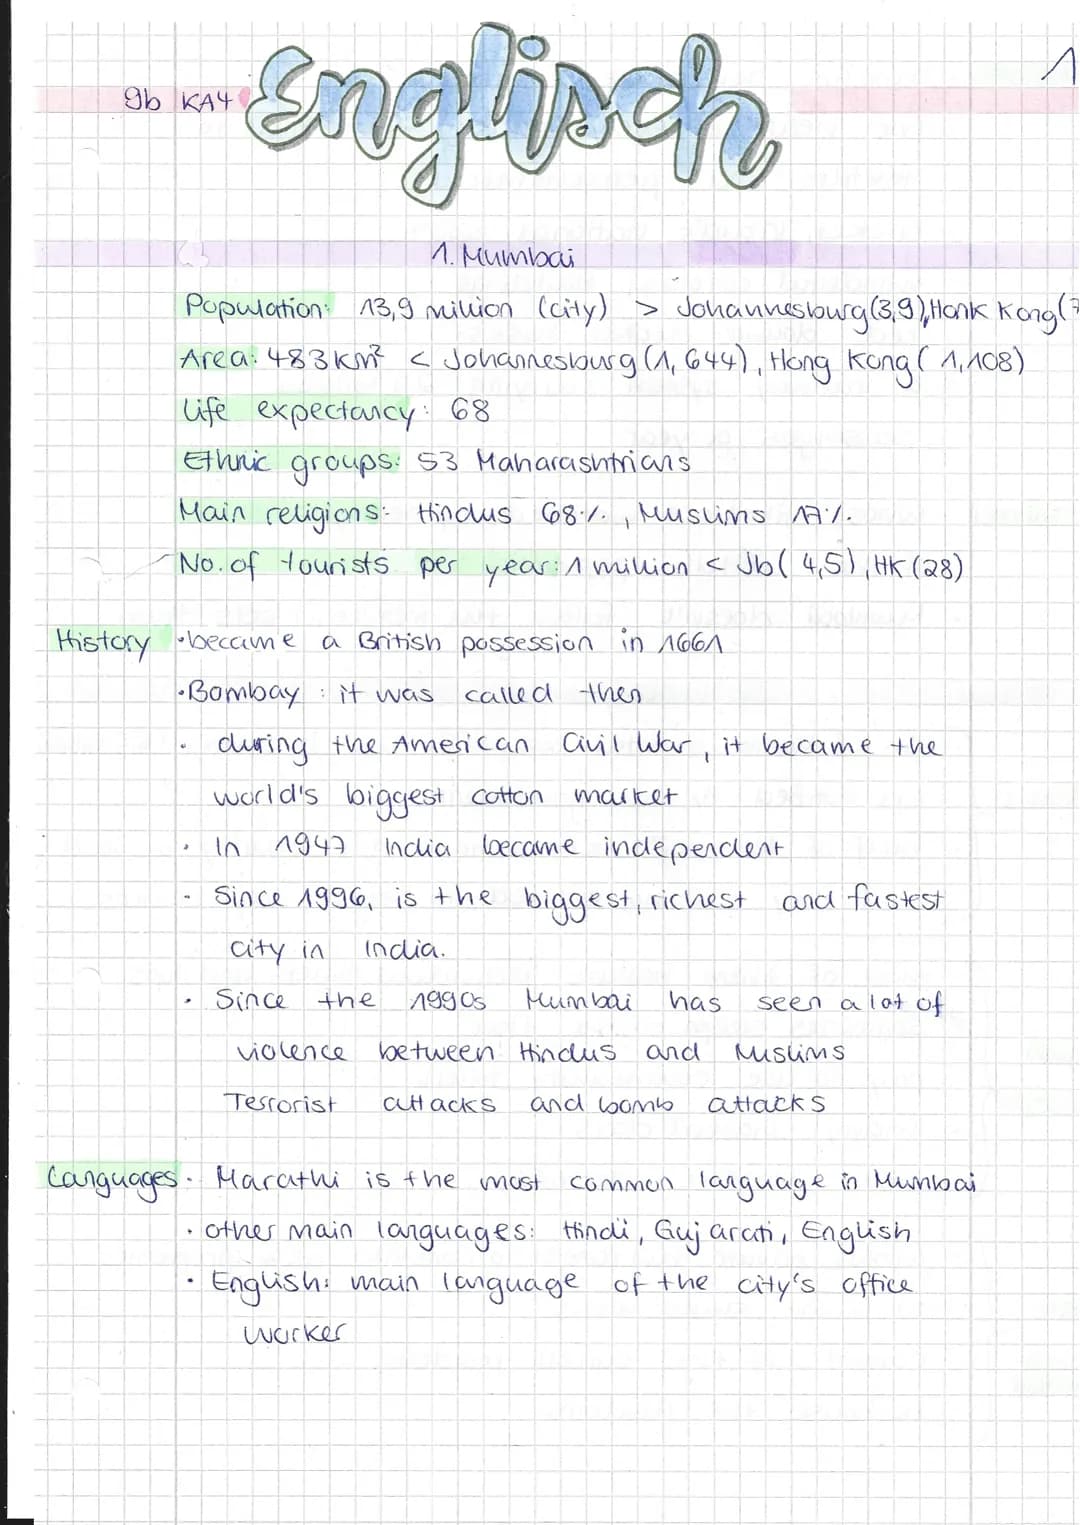 1
9b KA4 Englisch
1. Mumbai
Population: 13,9 million (city) > Johannesburg (3,9), Honk Kong (7
Area: 483 km² < Johannesburg (1,644), Hong Kong (1,108)
Life expectancy: 68
Ethnic groups: 53 Maharashtrians
Main religions: Hindus 68%, Muslims 17%.
No. of tourists per year: 1 million < Jb (4,5), HK (28)
History • became a British possession in 1661
• Bombay: it was called then
• during the American Civil War, it became the
world's biggest cotton market
• In 1947 India became independent
- Since 1996, is the biggest, richest and fastest
city in India.
• Since the 1990s Mumbai has seen a lot of
violence between Hindus and Muslims
Terrorist attacks and bomb attacks
Languages • Marathi is the most common language in Mumbai
• other main languages: Hindi, Gujarati, English
• English: main language of the city's office
worker